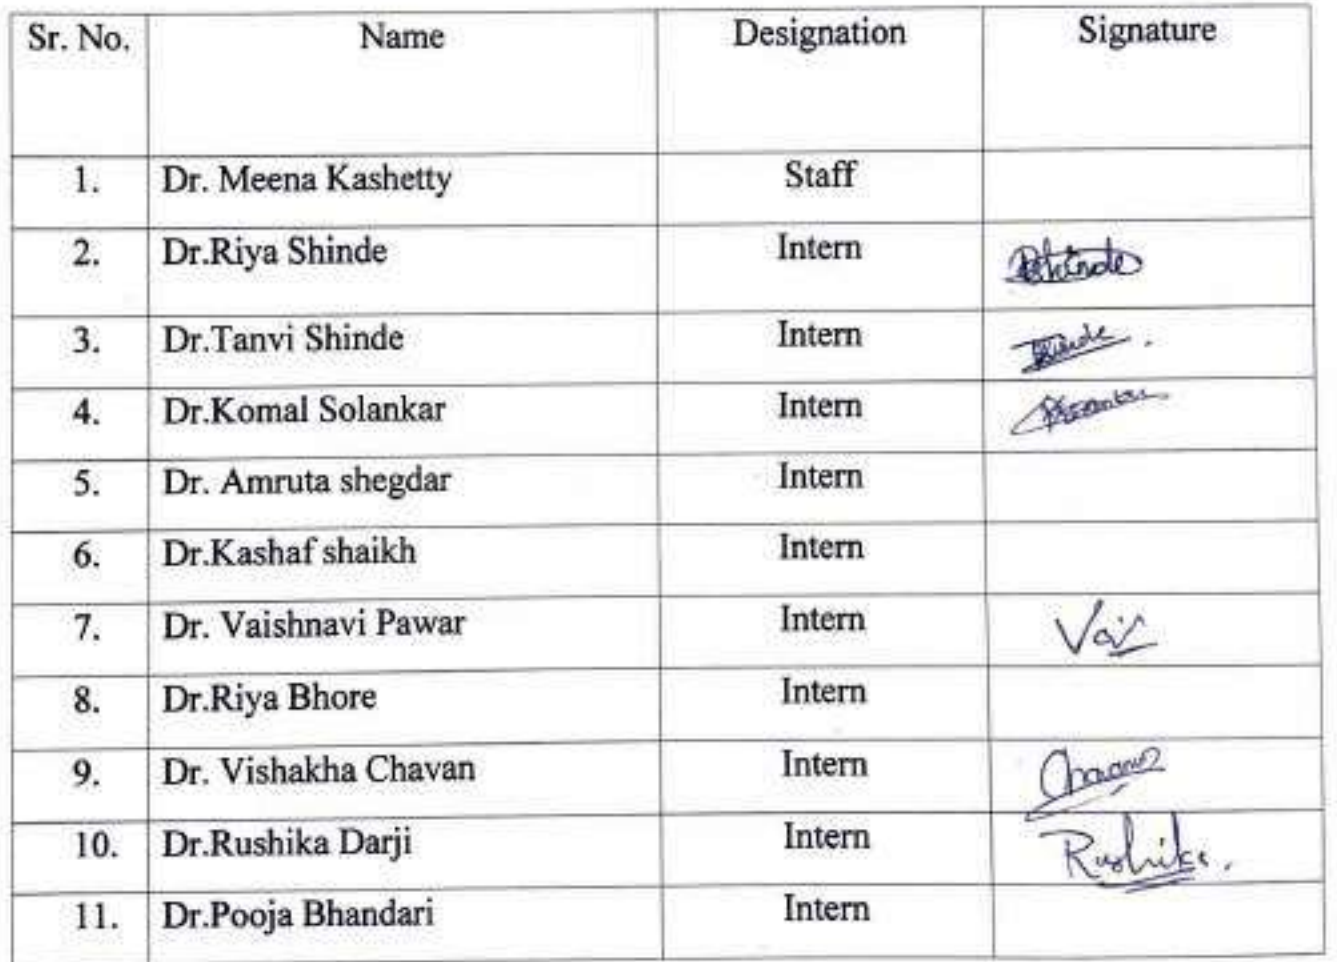 Sr. No. Name Designation Signature
1. Dr. Meena Kashetty Staff
2. Dr.Riya Shinde Intern Rshinde
3. Dr.Tanvi Shinde Intern
4. Dr.Komal Solankar Intern
5. Dr. Amruta shegdar Intern
6. Dr.Kashaf shaikh Intern
7. Dr. Vaishnavi Pawar Intern Vai
8. Dr.Riya Bhore Intern
9. Dr. Vishakha Chavan Intern
10. Dr.Rushika Darji Intern Rushika.
11. Dr.Pooja Bhandari Intern